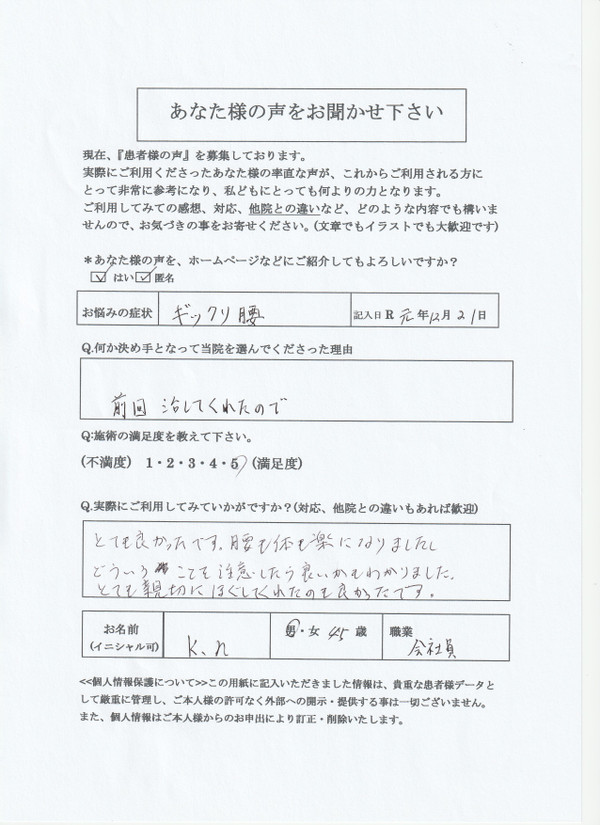 あなた様の声をお聞かせ下さい
現在、『患者様の声』を募集しております。
実際にご利用くださったあなた様の率直な声が、これからご利用される方に
とって非常に参考になり、私どもにとっても何よりの力となります。
ご利用してみての感想、対応、他院との違いなど、どのような内容でも構いま
せんので、お気づきの事をお寄せください。(文章でもイラストでも大歓迎です)
＊あなた様の声を、ホームページなどにご紹介してもよろしいですか？
☑はい☑匿名
お悩みの症状 ギックリ腰 記入日 R 元年12月21日
Q.何か決め手となって当院を選んでくださった理由
前回 治してくれたので
Q:施術の満足度を教えて下さい。
(不満度) 1・2・3・4・5 (満足度)
Q.実際にご利用してみていかがですか？(対応、他院との違いもあれば歓迎)
とても良かったです。腰も体も楽になりましたし
どういう ことを注意したら良いかもわかりました。
とても親切にほぐしてくれたのも良かったです。
お名前 (イニシャル可) K.n 男・女 45 歳 職業 会社員
<<個人情報保護について>>この用紙に記入いただきました情報は、貴重な患者様データと
して厳重に管理し、ご本人様の許可なく外部への開示・提供する事は一切ございません。
また、個人情報はご本人様からのお申出により訂正・削除いたします。